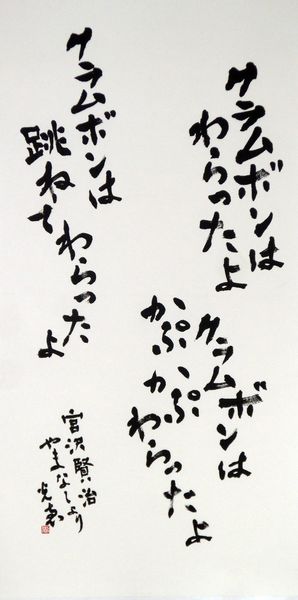 クラムボンは
わらったよ
クラムボンは
かぷかぷ
わらったよ
クラムボンは
跳ねて
わらったよ
宮沢賢治
やまなしより